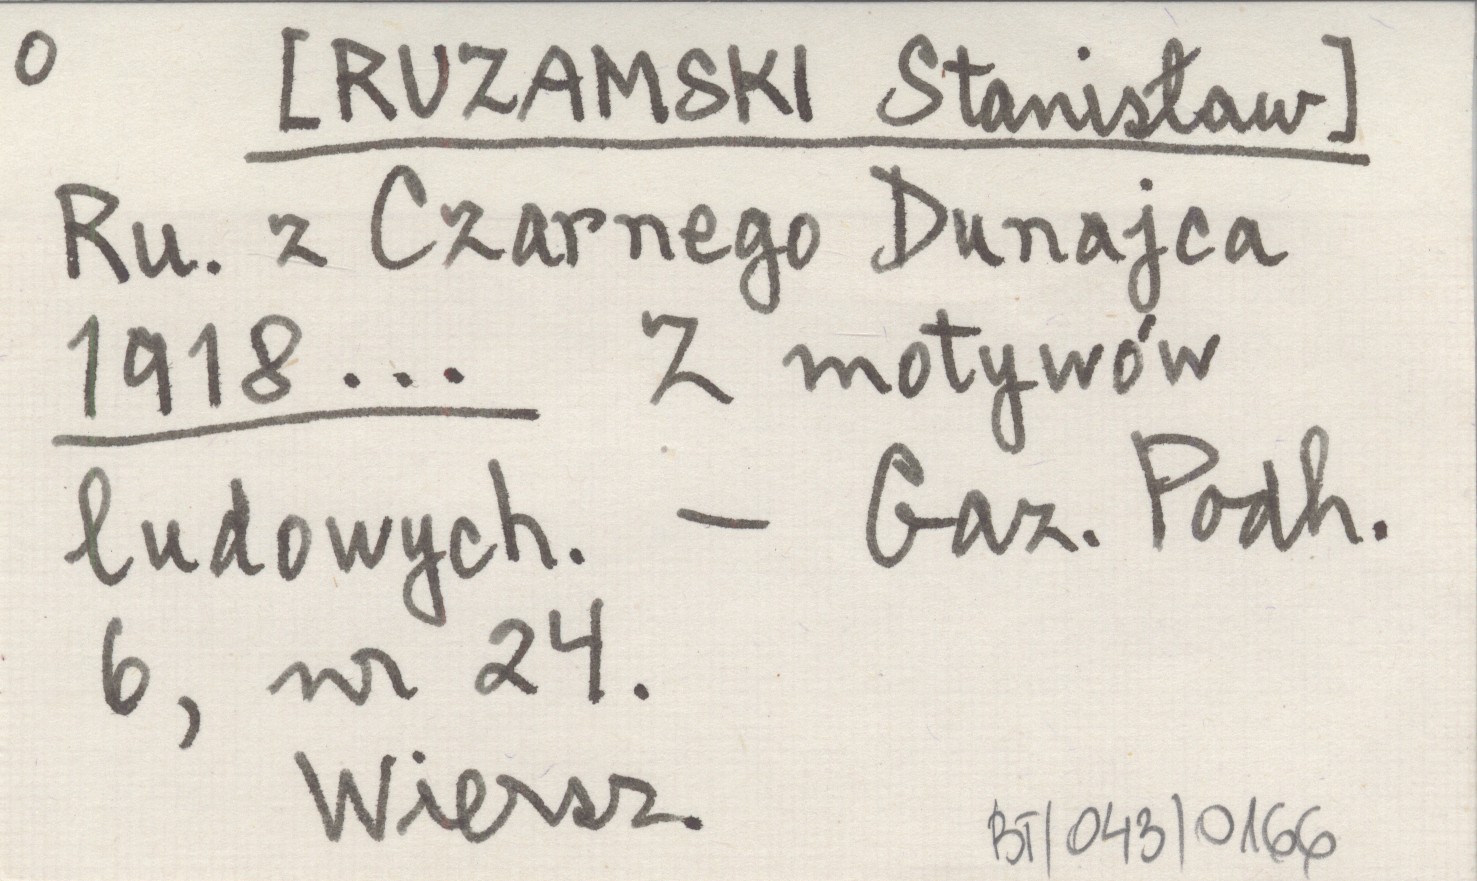 0 [RUZAMSKI Stanisław]
Ru. z Czarnego Dunajca
1918... Z motywów
ludowych. - Gaz. Podh.
6, nr 24.
Wiersz.
BT/043/0166